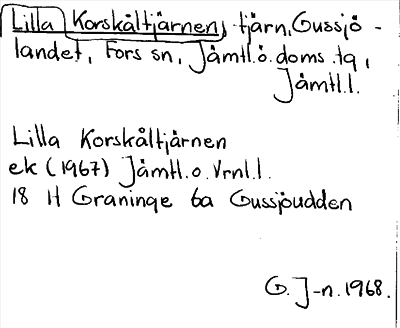 Lilla Korskåltjärnen, tjärn, Gussjö-
landet, Fors sn, Jämtl.ö.doms.tg,
Jämtl.l.
Lilla Korskåltjärnen
ek (1967) Jämtl.o.Vrnl.l.
18 H Graninge 6a Gussjöudden
G. J-n. 1968.